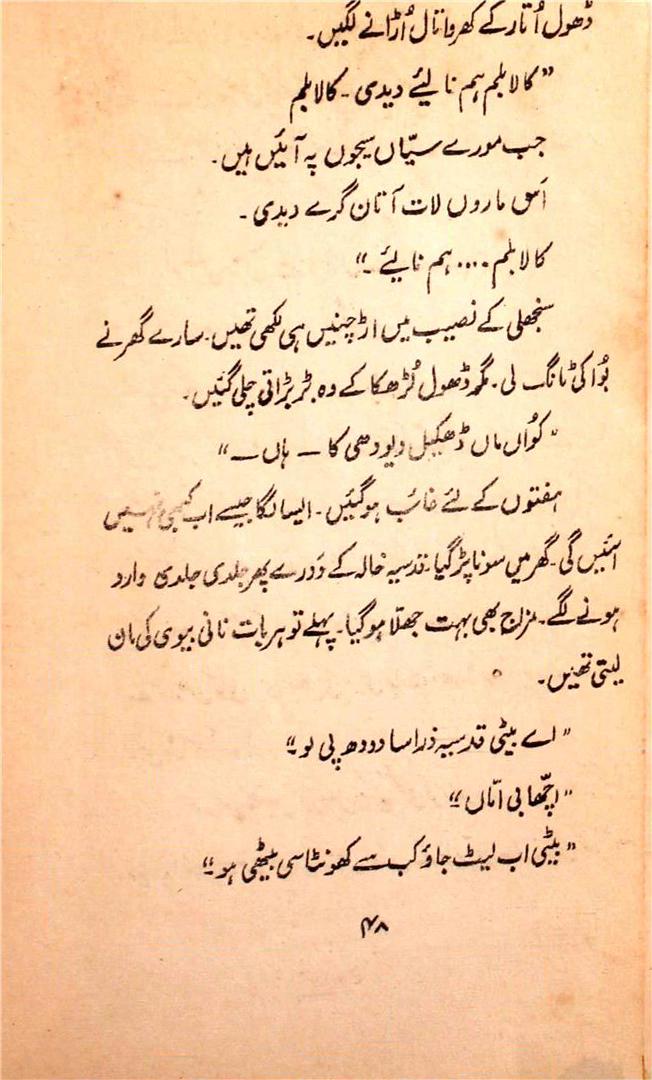 ڈھول اُتار کے کھروا تال اُڑانے لگیں۔
”کالا بلم ہم نا لیئے دیدی۔ کالا بلم
جب مورے سیّاں سیجوں پہ آئیں ہیں۔
اَس ماروں لات آتان گرے دیدی۔
کالا بلم .... ہم نا لیئے۔“
سنجھلی کے نصیب میں اڑچنیں ہی لکھی تھیں۔ سارے گھر نے
بُوا کی ٹانگ لی۔ مگر ڈھول لُڑھکا کے وہ بڑبڑاتی چلی گئیں۔
”کُواں ماں ڈھکیل دیو دھی کا — ہاں —“
ہفتوں کے لئے غائب ہو گئیں۔ ایسا لگا جیسے اب کبھی نہیں
آئیں گی۔ گھر میں سونا پڑ گیا۔ قدسیہ خالہ کے دَورے پھر جلدی جلدی وارد
ہونے لگے۔ مزاج بھی بہت جھلّا ہو گیا۔ پہلے تو ہر بات نانی بیوی کی مان
لیتی تھیں۔
”اے بیٹی قدسیہ ذرا سا دودھ پی لو۔“
”اچھا بی امّاں۔“
”بیٹی اب لیٹ جاؤ کب سے کھونٹا سی بیٹھی ہو۔“
۴۸